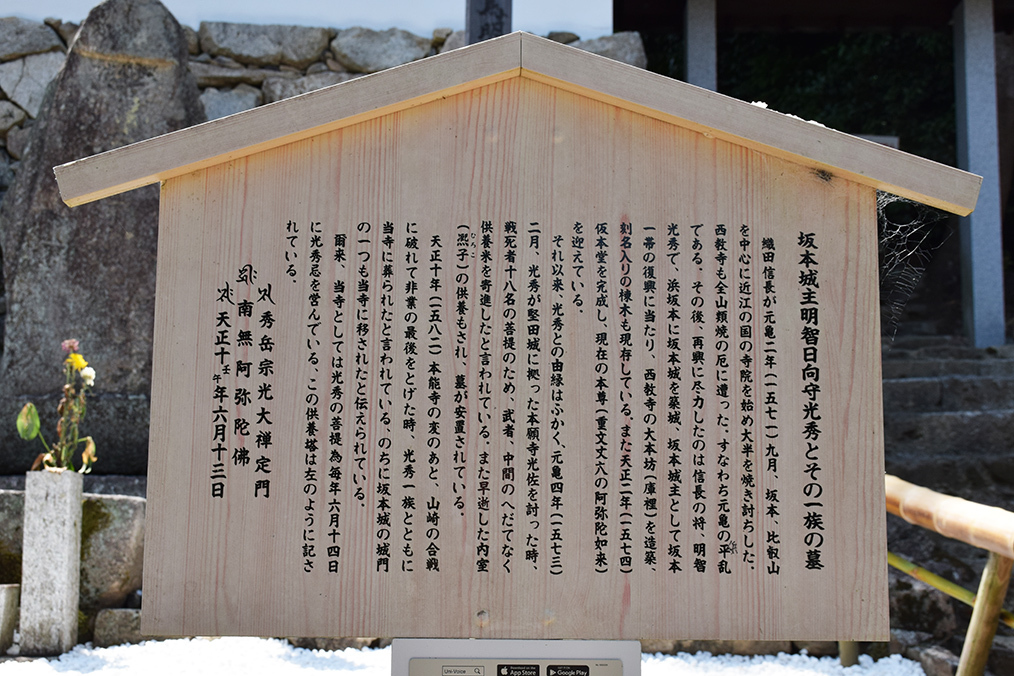 坂本城主明智日向守光秀とその一族の墓
織田信長が元亀二年(一五七一)九月、坂本、比叡山
を中心に近江の国の寺院を始め大半を焼き討ちした。
西教寺も全山類焼の厄に遭った。すなわち元亀の乎乱
である。その後、再興に尽力したのは信長の将、明智
光秀で、浜坂本に坂本城を築城、坂本城主として坂本
一帯の復興に当たり、西教寺の大本坊(庫裡)を造築、
刻名入りの棟木も現存している。また天正二年(一五七四)
仮本堂を完成し、現在の本尊(重文丈六の阿弥陀如来)
を迎えている。
それ以来、光秀との由縁はふかく、元亀四年(一五七三)
二月、光秀が堅田城に拠った本願寺光佐を討った時、
戦死者十八名の菩提のため、武者、中間のへだてなく
供養米を寄進したと言われている。また早逝した内室
(熙子)の供養もされ、墓が安置されている。
ひろこ
天正十年(一五八二)本能寺の変のあと、山崎の合戦
に破れて非業の最後をとげた時、光秀一族とともに
当寺に葬られたと言われている、のちに坂本城の城門
の一つも当寺に移されたと伝えられている。
爾来、当寺としては光秀の菩提為毎年六月十四日
に光秀忌を営んでいる、この供養塔は左のように記さ
れている。
秀岳宗光大禅定門
南無阿弥陀佛
天正十壬午年六月十三日
Uni-Voice
Download on the
App Store
GET IT ON
Google Play